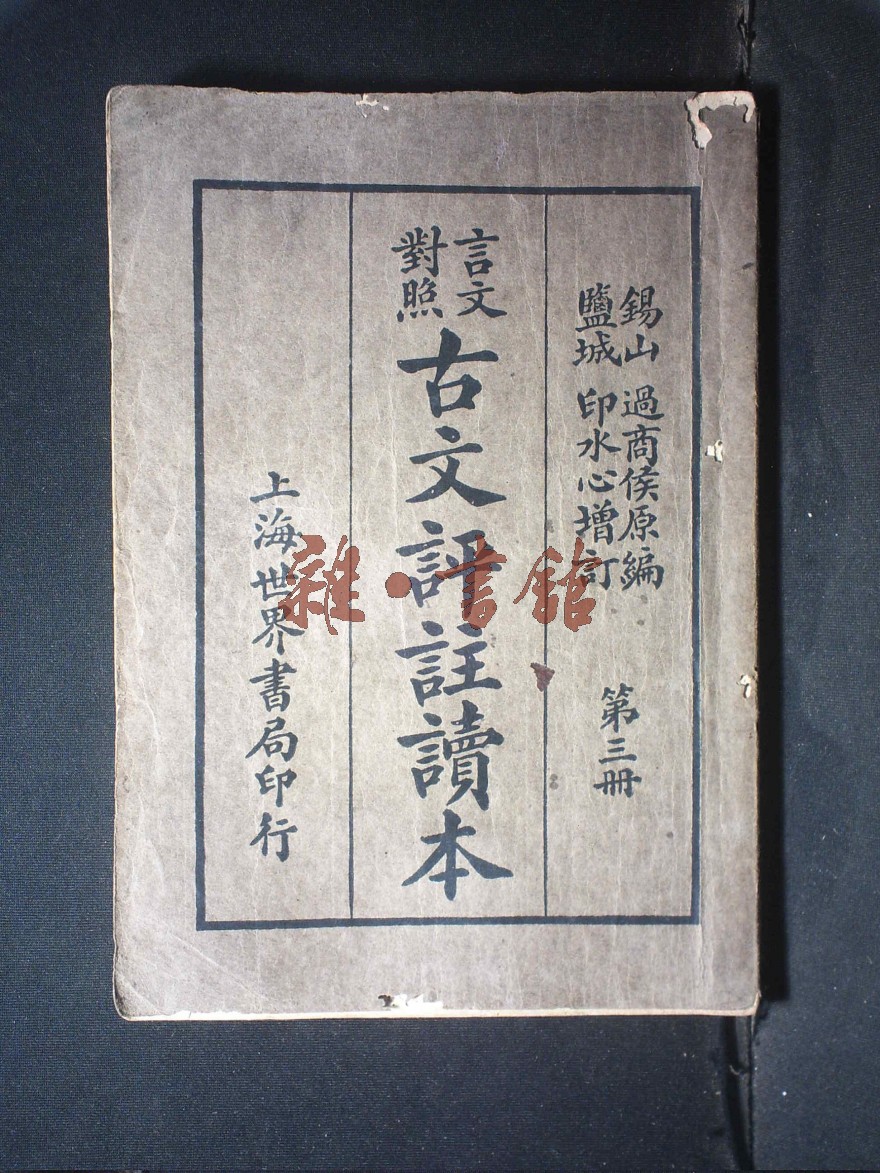 錫山 過商侯原編
鹽城 印水心增訂
第三冊
言文
對照
古文評註讀本
上海世界書局印行
雜·書館